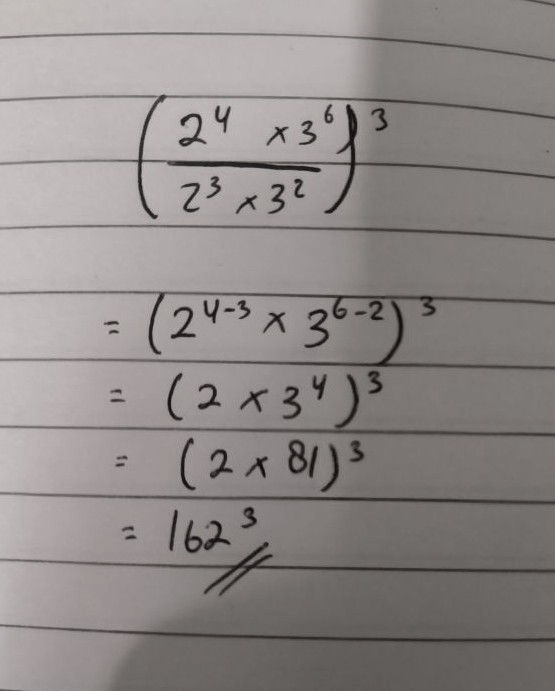 (2⁴ × 3⁶)³
2³ × 3²
= (2⁴⁻³ × 3⁶⁻²)³
= (2 × 3⁴)³
= (2 × 81)³
= 162³